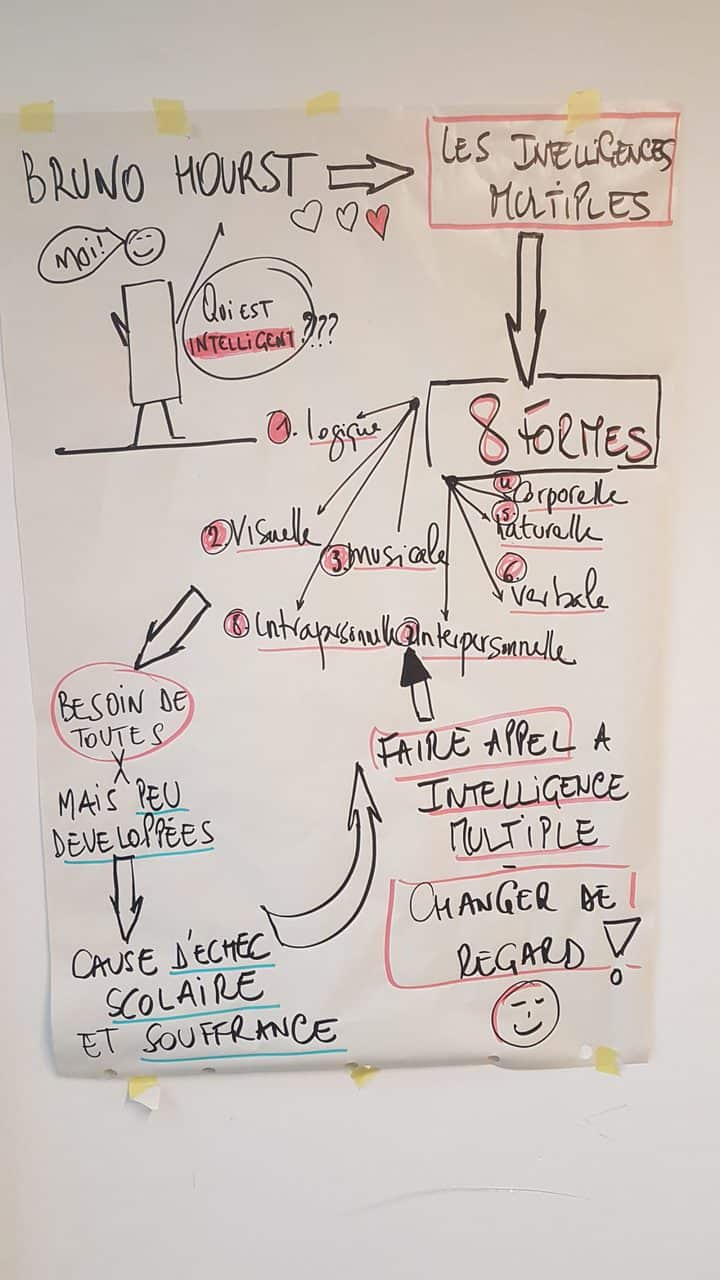 BRUNO HOURST
LES INTELLIGENCES
MULTIPLES
MOI!
QUI EST
INTELLIGENT ???
8 FORMES
1. Logique
2. Visuelle
3. musicale
4. Corporelle
5. naturelle
6. Verbale
8. Intrapersonnelle
7. Interpersonnelle
BESOIN DE
TOUTES
MAIS PEU
DEVELOPPÉES
CAUSE D'ECHEC
SCOLAIRE
ET SOUFFRANCE
FAIRE APPEL A
INTELLIGENCE
MULTIPLE
-
CHANGER DE
REGARD !